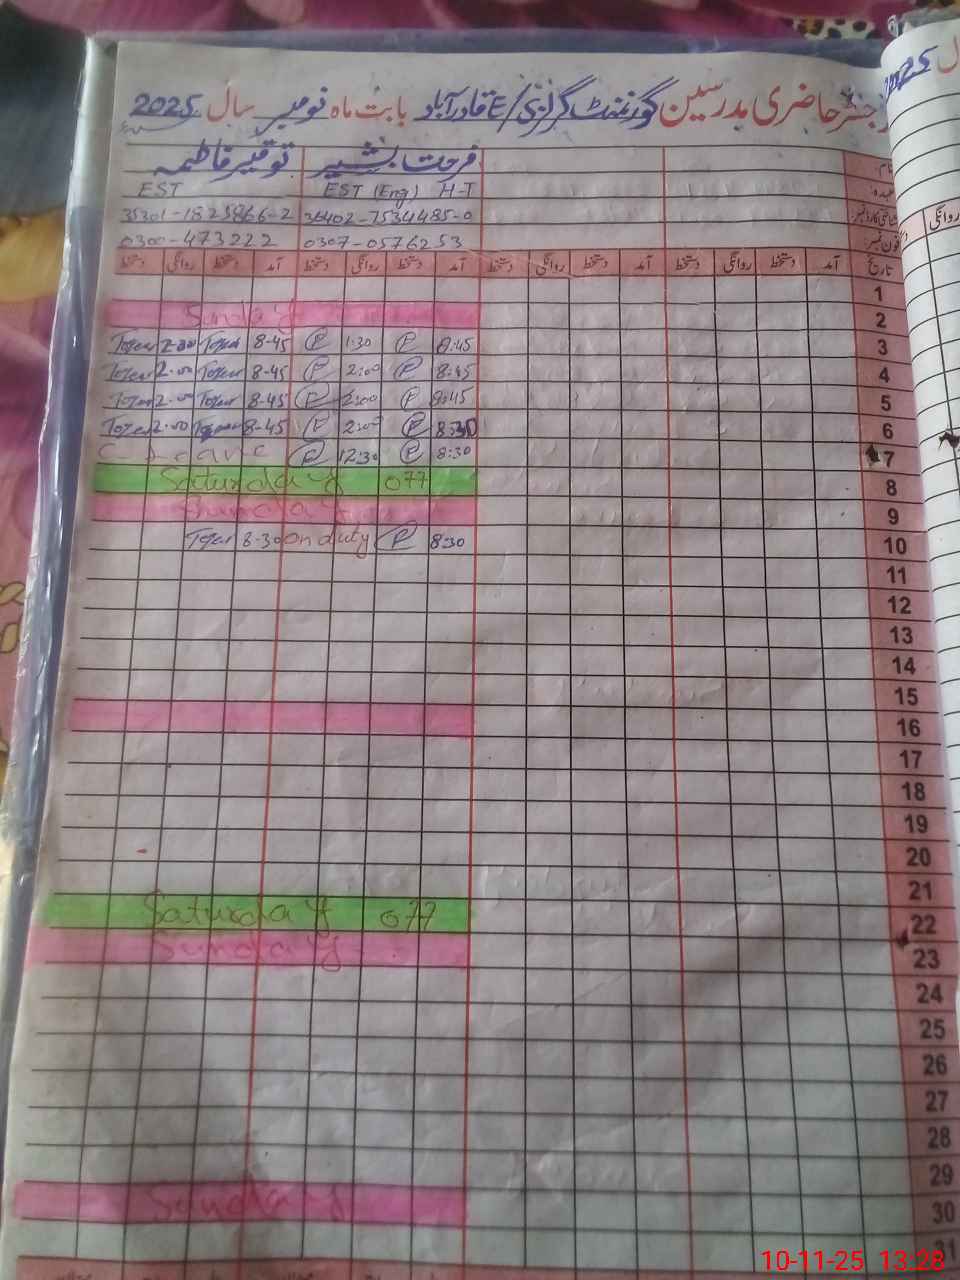 رجسٹر حاضری مدرسین گورنمنٹ گرلز E/S قادرآباد بابت ماہ نومبر سال 2025
نام: فرحت بشیر توقیر فاطمہ
عہدہ: EST (Eng) H-T EST
شناختی کارڈ نمبر: 36402-7534485-0 35301-1825866-2
فون نمبر: 0307-0576253 0300-473222
تاریخ آمد دستخط روانگی دستخط آمد دستخط روانگی دستخط آمد دستخط روانگی دستخط آمد دستخط روانگی دستخط
1
2 Sunday
3 8:45 P 1:30 P 8-45 2-00
4 8:45 P 2:00 P 8-45 2-00
5 8:45 P 2:00 P 8-45 2-00
6 8:30 P 2:00 P 8-45 2-00
7 8:30 P 12:30 P
8 Saturday off
9 Sunday
10 8:30 P on duty 8-30
11
12
13
14
15
16
17
18
19
20
21
22 Saturday off
23 Sunday
24
25
26
27
28
29
30 Sunday
31
روانگی
2025
10-11-25 13:28